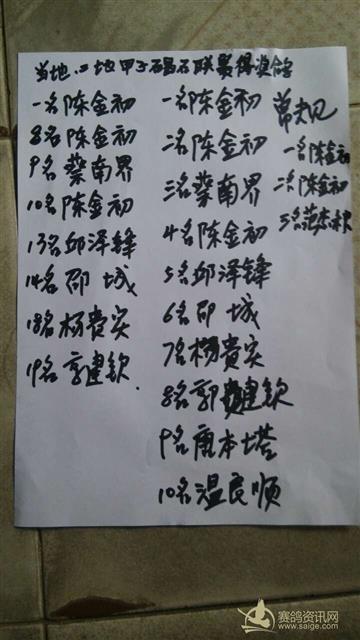 当地.二地甲子碣石联赛得奖鸽
一名陈金初
8名陈金初
9名蔡南界
10名陈金初
13名邱泽锋
14名邵城
18名杨贵实
19名郭建钦
一名陈金初
二名陈金初
三名蔡南界
4名陈金初
5名邱泽锋
6名邵城
7名杨贵实
8名郭建钦
9名唐本塔
10名温良顺
常规
一名陈金初
二名陈金初
3名范
赛鸽资讯网
www.saige.com